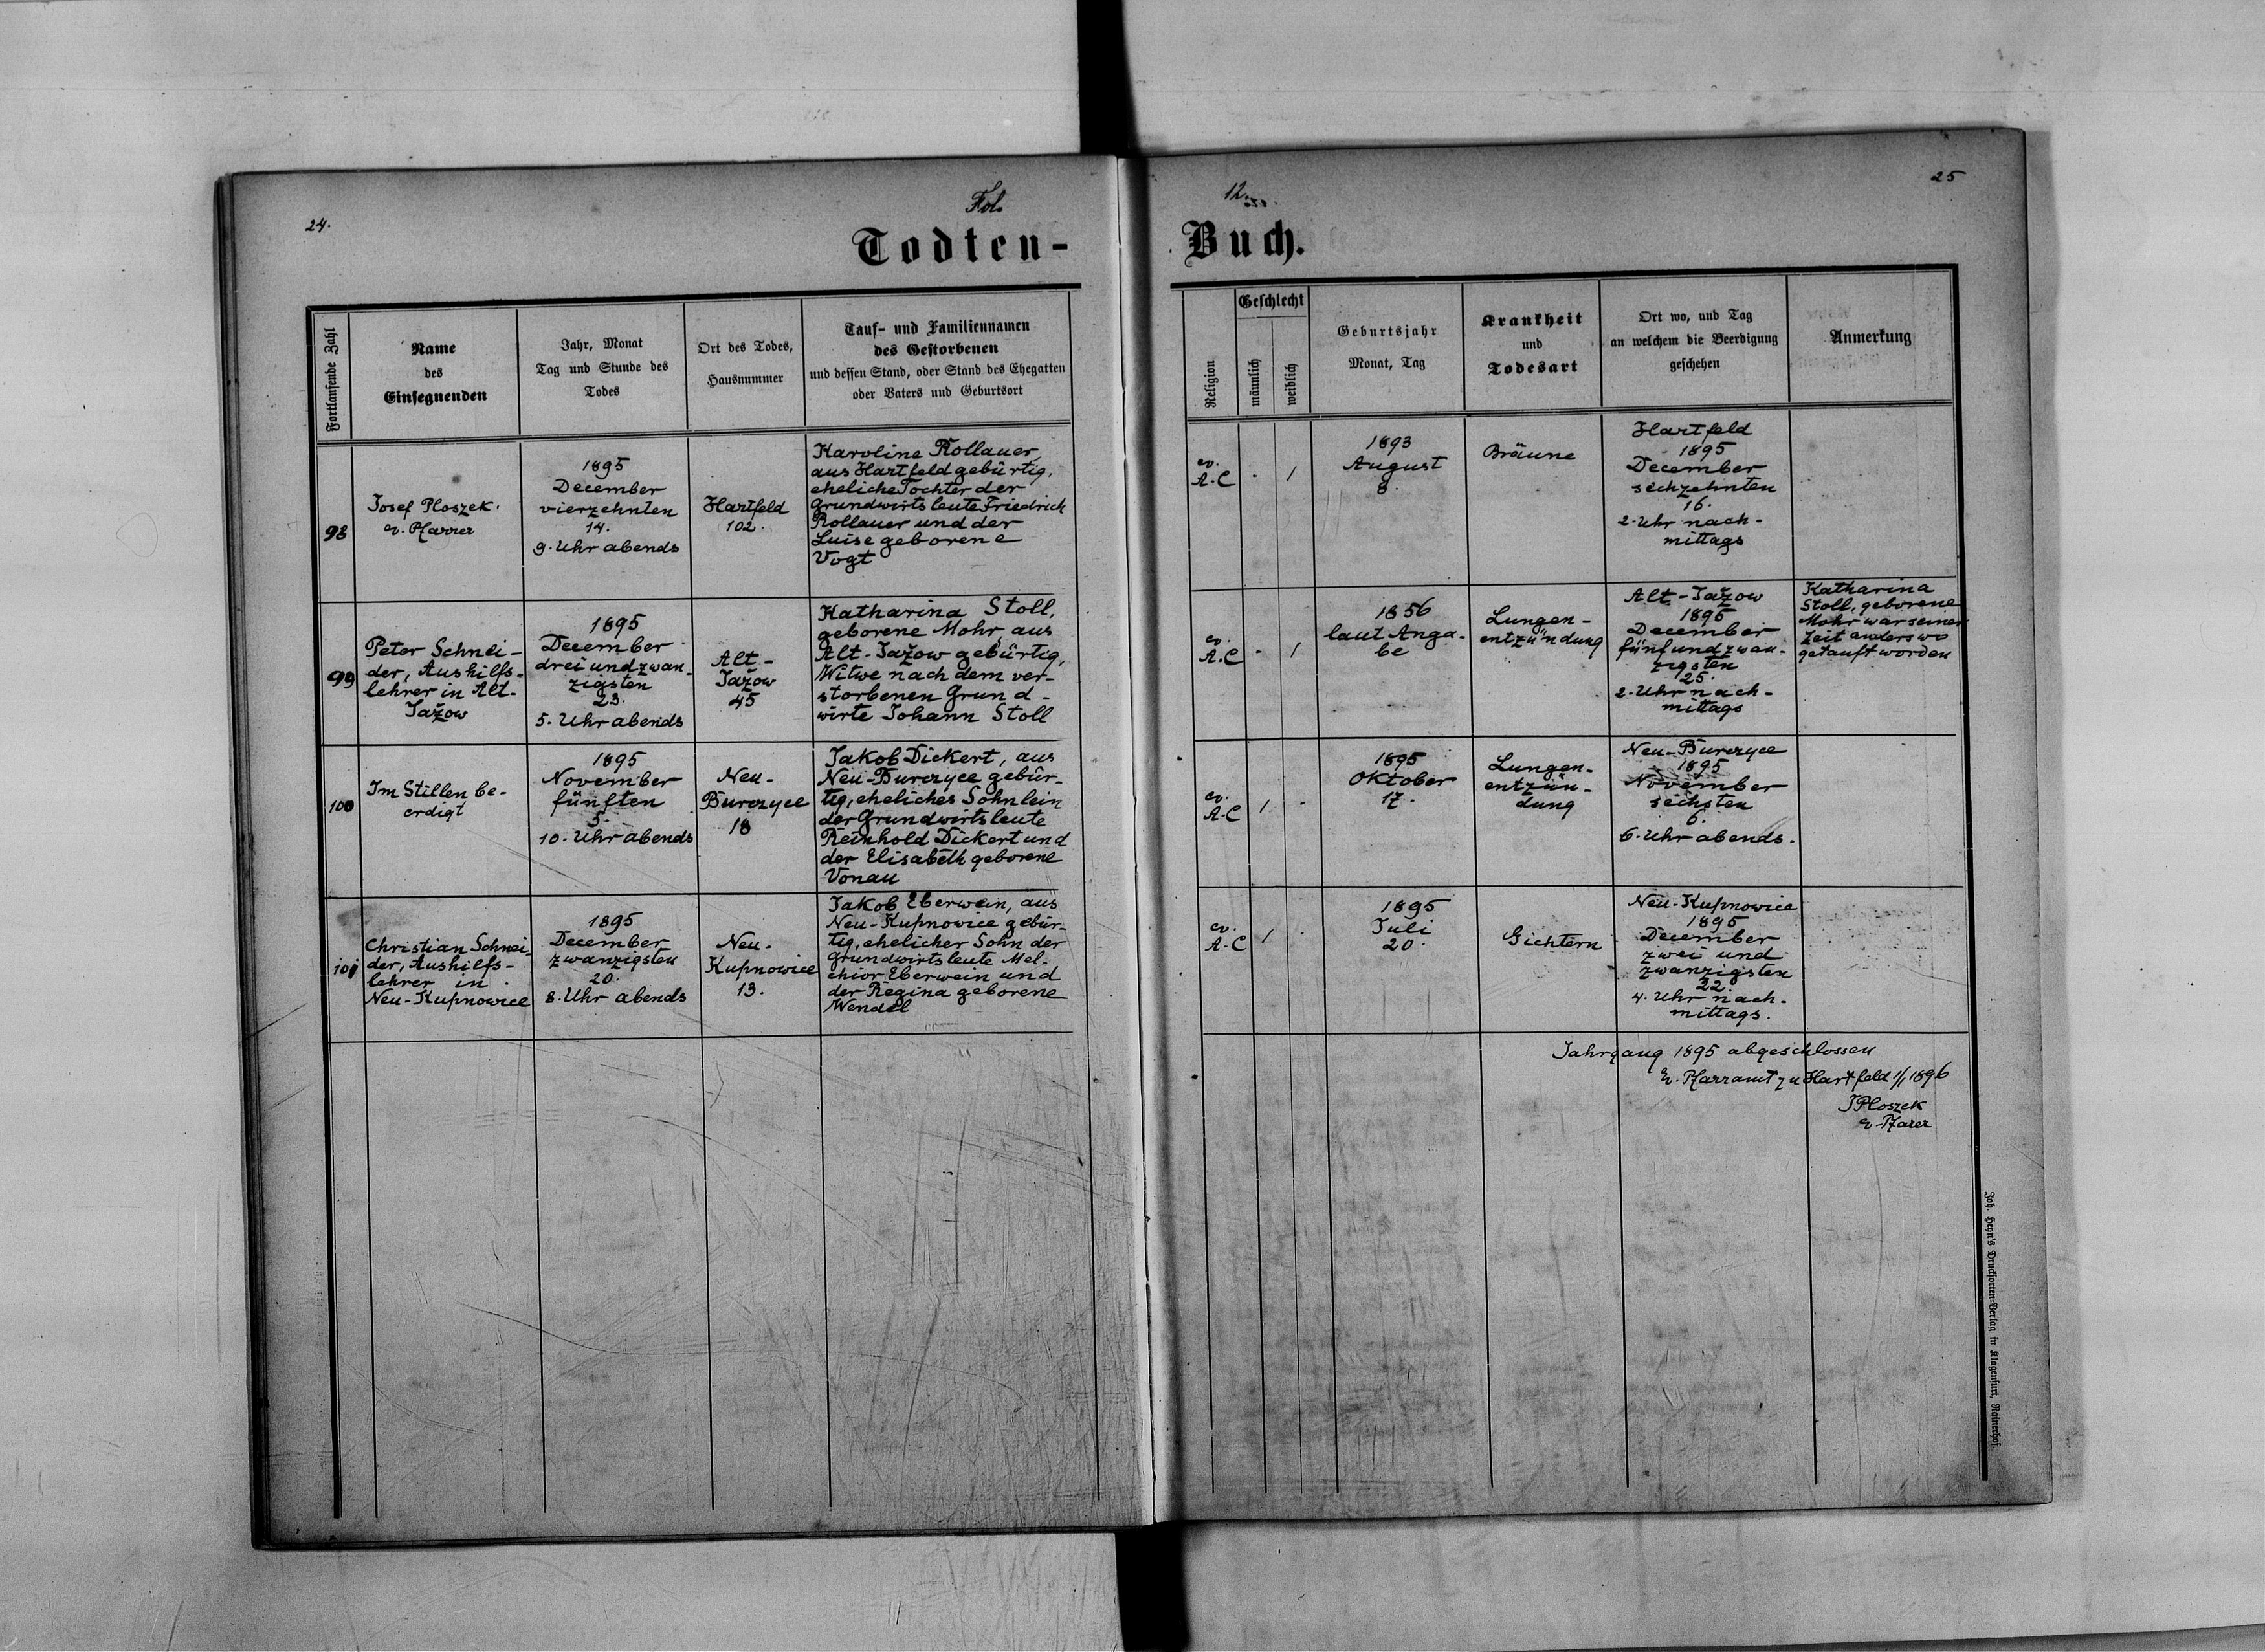 24.
Fol.
12.
25
Todten-
Buch.
Fortlaufende Zahl
Name
des
Einsegnenden
Jahr, Monat
Tag und Stunde des
Todes
Ort des Todes,
Hausnummer
Tauf- und Familiennamen
des Gestorbenen
und dessen Stand, oder Stand des Ehegatten
oder Vaters und Geburtsort
Religion
Geschlecht
männlich
weiblich
Geburtsjahr
Monat, Tag
Krankheit
und
Todesart
Ort wo, und Tag
an welchem die Beerdigung
geschehen
Anmerkung
98
Josef Ploszek.
ev. Pfarrer
1895
December
vierzehnten
14.
9. Uhr abends
Hartfeld
102.
Karoline Rollauer,
aus Hartfeld gebürtig,
eheliche Tochter der
Grundwirtsleute Friedrich
Rollauer und der
Luise geborene
Vogt
ev.
A.C
-
1
1893
August
8.
Bräune
Hartfeld
1895
December
sechzehnten
16.
2. Uhr nach-
mittags
99
Peter Schnei-
der, Aushilfs-
lehrer in Alt-
Jažow
1895
December
drei und zwan-
zigsten
23.
5. Uhr abends
Alt-
Jažow
45
Katharina Stoll,
geborene Mohr, aus
Alt-Jažow gebürtig,
Witwe nach dem ver-
storbenen Grund-
wirte Johann Stoll
ev.
A.C
-
1
1856
laut Anga-
be
Lungen-
entzündung
Alt-Jažow
1895
December
fünf und zwan-
zigsten
25.
2. Uhr nach-
mittags
Katharina
Stoll, geborene
Mohr war seiner
Zeit anderswo
getauft worden
100
Im Stillen be-
erdigt
1895
November
fünften
5.
10. Uhr abends
Neu-
Burczyce
18
Jakob Dickert, aus
Neu-Burczyce gebür-
tig, eheliches Söhnlein
der Grundwirtsleute
Reinhold Dickert und
der Elisabeth geborene
Vonau
ev.
A.C
1
-
1895
Oktober
17.
Lungen-
entzün-
dung
Neu-Burczyce
1895
November
sechsten
6.
6. Uhr abends.
101
Christian Schnei-
der, Aushilfs-
lehrer in
Neu-Kupnowice
1895
December
zwanzigsten
20.
8. Uhr abends
Neu-
Kupnowice
13.
Jakob Eberwein, aus
Neu-Kupnowice gebür-
tig, ehelicher Sohn der
Grundwirtsleute Mel-
chior Eberwein und
der Regina geborene
Wendel
ev.
A.C
1
-
1895
Juli
20.
Gichtern
Neu-Kupnowice
1895
December
zwei und
zwanzigsten
22.
4. Uhr nach-
mittags.
Jahrgang 1895 abgeschlossen
Ev. Pfarramt zu Hartfeld 1/1 1896
JPloszek
ev. Pfarer
Joh. Heyn's Drucksorten-Verlag in Klagenfurt, Rainerhof.